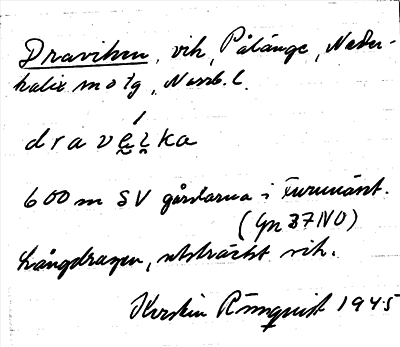 Draviken, vik, Pålänge, Neder-
kalix sn o tg, Norrb. l.
dravéi̯ka
600 m SV gårdarna i Furunäset.
(Gn 37NO)
Långdragen, utsträckt vik.
Kerstin Rönnquist 1945